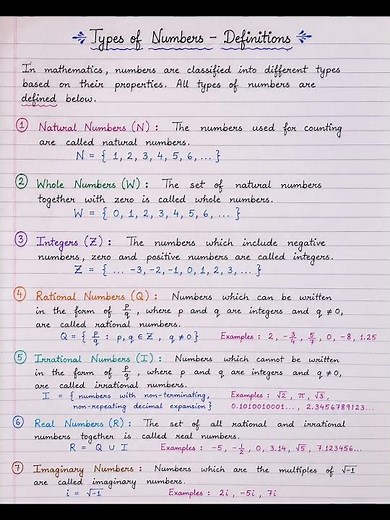 Types of Numbers – Definitions
In mathematics, numbers are classified into different types
based on their properties. All types of numbers are
defined below.
① Natural Numbers (N) : The numbers used for counting
are called natural numbers.
N = { 1, 2, 3, 4, 5, 6, ... }
② Whole Numbers (W) : The set of natural numbers
together with zero is called whole numbers.
W = { 0, 1, 2, 3, 4, 5, 6, ... }
③ Integers (Z) : The numbers which include negative
numbers, zero and positive numbers are called integers.
Z = { ... -3, -2, -1, 0, 1, 2, 3, ... }
④ Rational Numbers (Q) : Numbers which can be written
in the form of p/q, where p and q are integers and q ≠ 0,
are called rational numbers.
Q = { p/q : p, q ∈ Z , q ≠ 0 } Examples : 2, -3/4, 5/9, 0, -8, 1.25
⑤ Irrational Numbers (I) : Numbers which cannot be written
in the form of p/q, where p and q are integers and q ≠ 0,
are called irrational numbers.
I = { numbers with non-terminating, Examples : √2 , π, √3,
non-repeating decimal expansion } 0.1010010001..., 2.3456789123...
⑥ Real Numbers (R) : The set of all rational and irrational
numbers together is called real numbers.
R = Q ∪ I Examples : -5, -1/2, 0, 3.14, √5, 7.123456...
⑦ Imaginary Numbers : Numbers which are the multiples of √-1
are called imaginary numbers.
i = √-1 Examples : 2i, -5i, 7i